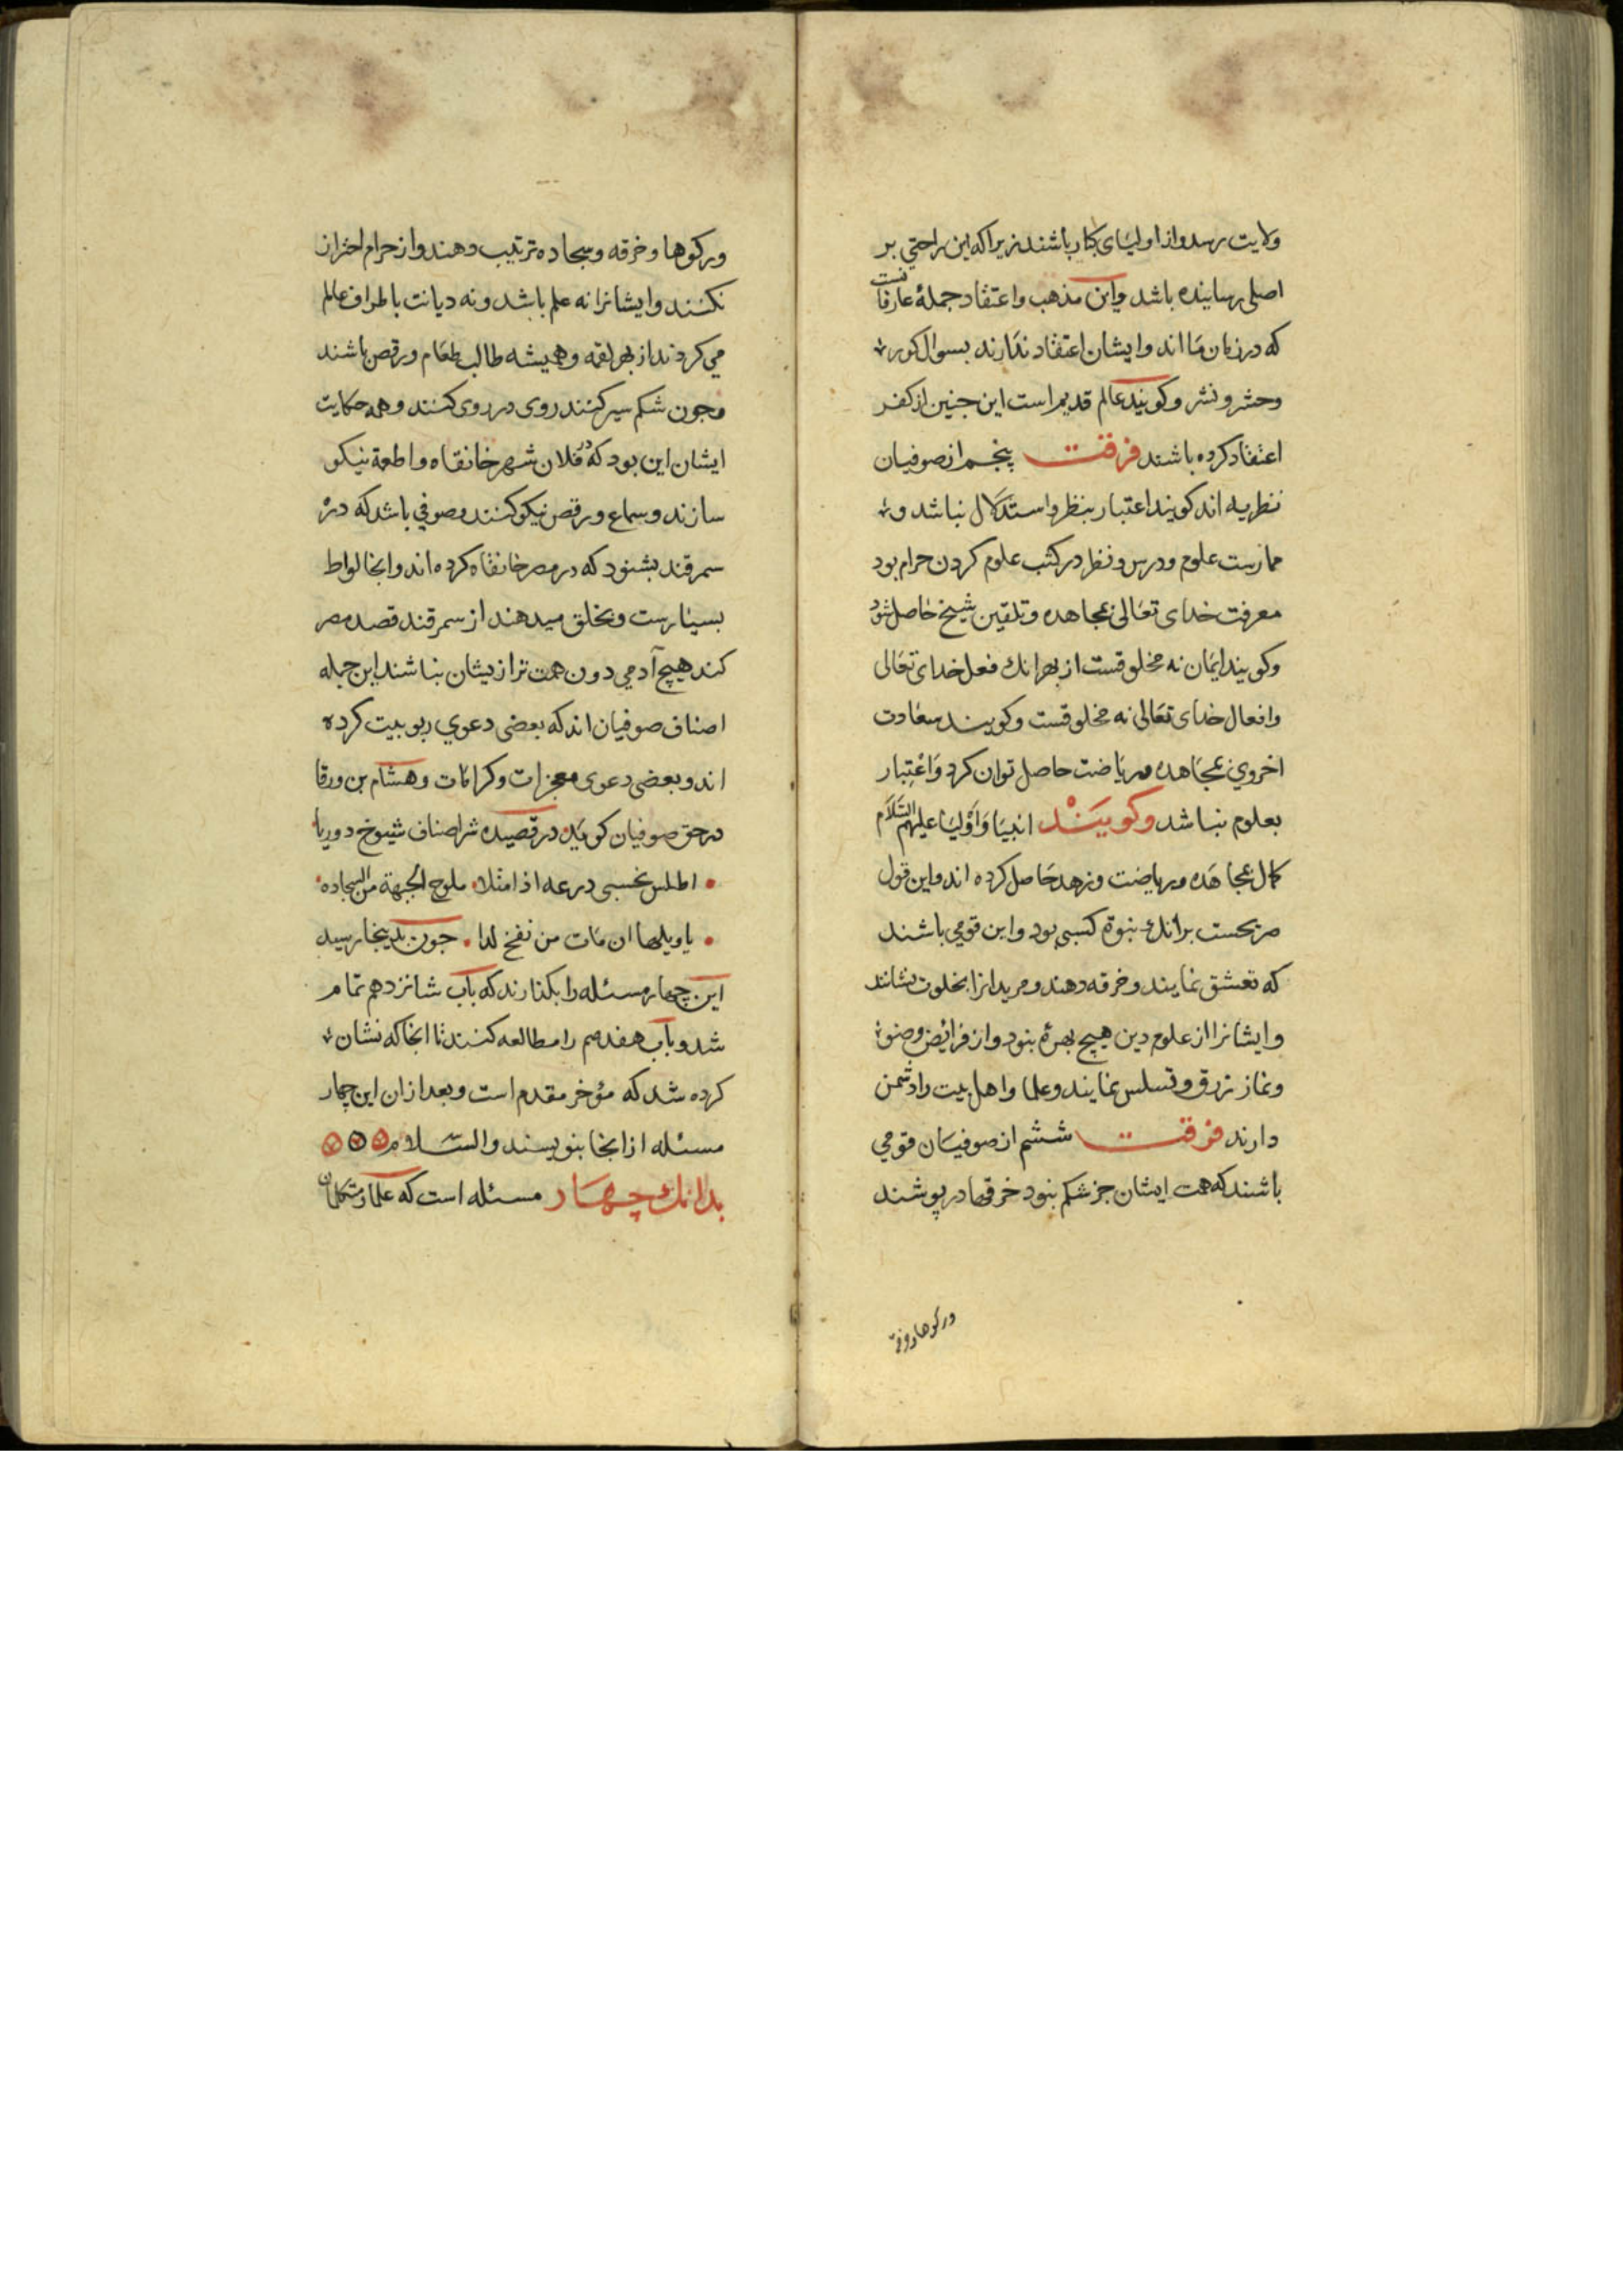 ولایت رسد و از اولیای کبار باشند زیرا که این راحتی بر
اصلی رساینده باشد واین مذهب واعتقاد جملهٔ عارفانست
که در زمان ما اند وایشان اعتقاد ندارند بسوال کور
وحشر ونشر وکویند عالم قدیم است این جنین از کفر
اعتقاد کرده باشند فرقت پنجم از صوفیان
نظریه اند کویند اعتبار بنظر واستدلال نباشد و
ممارست علوم ودرس ونظر در کتب علوم کردن حرام بود
معرفت خدای تعالی بمجاهده وتلقین شیخ حاصل شود
وکویند ایمان نه مخلوقست از بهر انک فعل خدای تعالی
وافعال خدای تعالی نه مخلوقست وکویند سعادت
اخروی بمجاهده وریاضت حاصل توان کرد واعتبار
بعلوم نباشد وکویند انبیا واولیا علیهم السلام
کمال بمجاهده وریاضت وزهد حاصل کرده اند واین قول
صریحست برانک نبوة کسبی بود واین قومی باشند
که تعشق نمایند وخرقه دهند ومریدانرا بخلوت نشانند
وایشانرا از علوم دین هیچ بهرهٔ نبود واز فرائض وضو
ونماز زرق وتسلس نمایند وعلما واهل بیت را دشمن
دارند فرقت ششم از صوفیان قومی
باشند که همت ایشان جز شکم نبود خرقها در پوشند
ورکوها وخرقه
ورکوها وخرقه وسجاده ترتیب دهند واز حرام احتراز
نکنند وایشانرا نه علم باشد ونه دیانت باطراف عالم
می کردند از بهر لقمه وهمیشه طالب طعام ورقص باشند
وجون شکم سیر کنند روی در روی کنند وهمه حکایت
ایشان این بود که در فلان شهر خانقاه واطعمهٔ نیکو
سازند وسماع ورقص نیکو کنند وصوفی باشد که در
سمرقند بشنود که در مصر خانقاه کرده اند وانجا لواط
بسیارست وبخلق میدهند از سمرقند قصد مصر
کند هیچ آدمی دون همت تر از یشان نباشند این جمله
اصناف صوفیان اند که بعضی دعوی ربوبیت کرده
اند وبعضی دعوی معجزات وکرامات وهشام بن ورقا
در حق صوفیان کوید در قصیده شر اصناف شیوخ
اطلس درعه اذا ملوح الجبهة من السجاده
یاویلها ان مات من نفخ لدا جون بدینجا رسید
این چهار مسئله را بکذارند که باب شانزدهم تمام
شد وباب هفدهم را مطالعه کنند تا انجا که نشان
کرده شد که مؤخر مقدم است وبعد از ان این چهار
مسئله از انجا بنویسند والسلام
بدانک چهار مسئله است که علما ومتکلمان